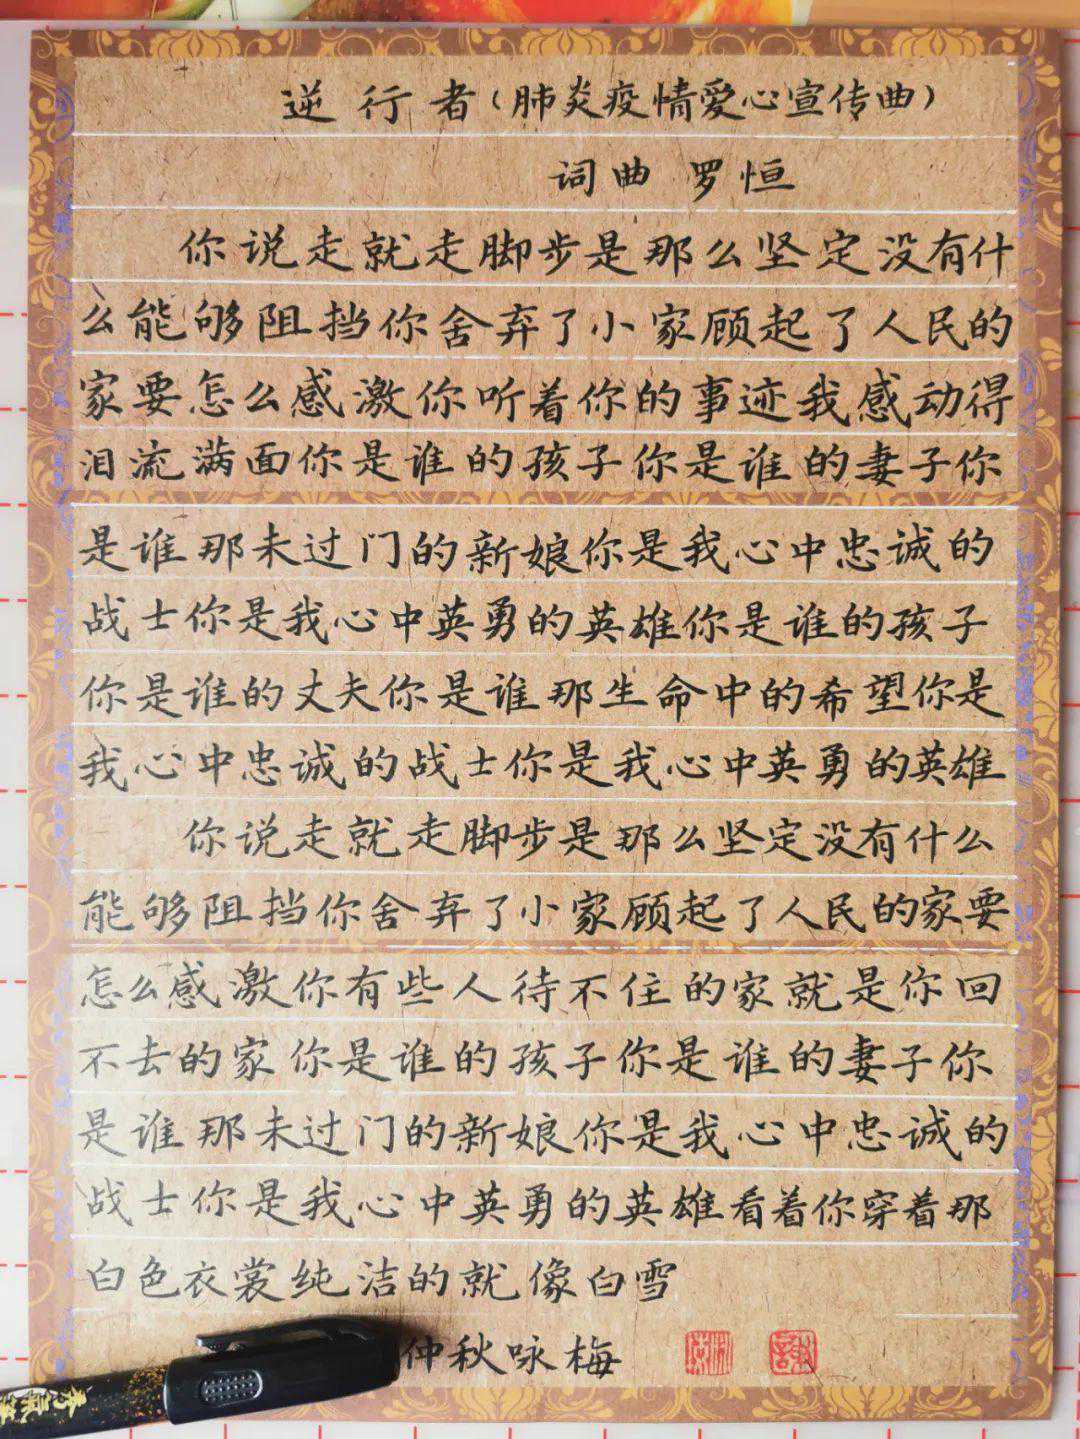 逆行者（肺炎疫情爱心宣传曲）
词曲 罗恒
你说走就走脚步是那么坚定没有什
么能够阻挡你舍弃了小家顾起了人民的
家要怎么感激你听着你的事迹我感动得
泪流满面你是谁的孩子你是谁的妻子你
是谁那未过门的新娘你是我心中忠诚的
战士你是我心中英勇的英雄你是谁的孩子
你是谁的丈夫你是谁那生命中的希望你是
我心中忠诚的战士你是我心中英勇的英雄
你说走就走脚步是那么坚定没有什么
能够阻挡你舍弃了小家顾起了人民的家要
怎么感激你有些人待不住的家就是你回
不去的家你是谁的孩子你是谁的妻子你
是谁那未过门的新娘你是我心中忠诚的
战士你是我心中英勇的英雄看着你穿着那
白色衣裳纯洁的就像白雪
仲秋咏梅